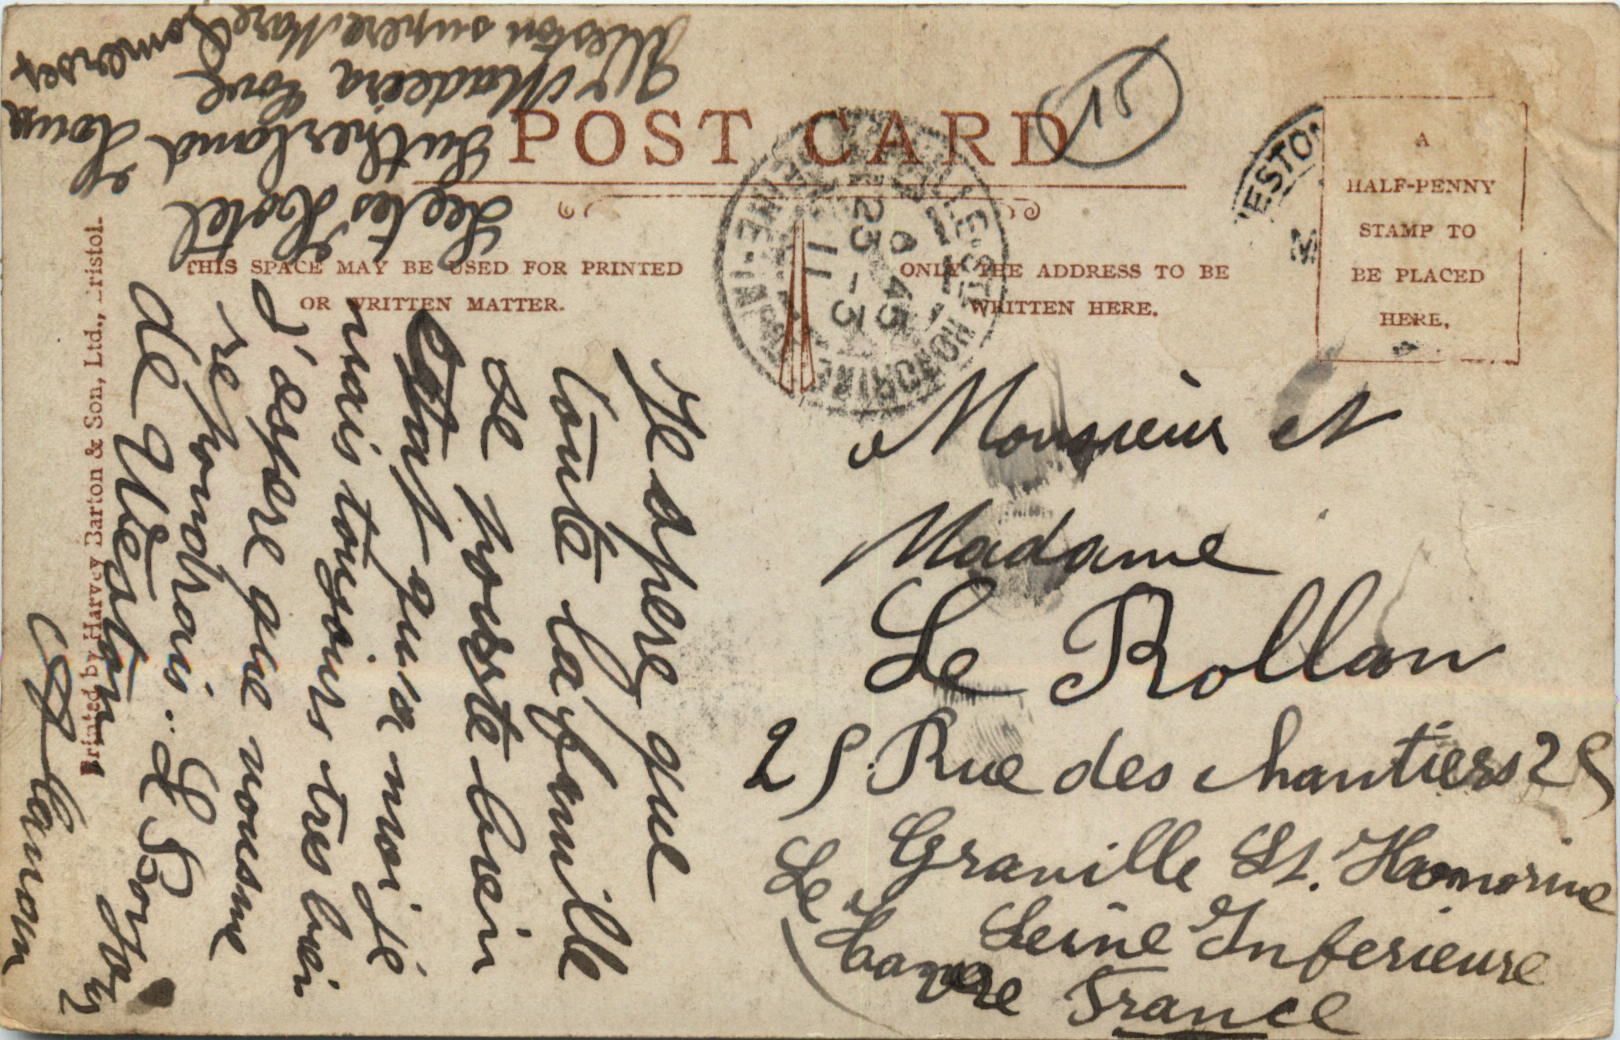 POST CARD
THIS SPACE MAY BE USED FOR PRINTED
OR WRITTEN MATTER.
ONLY THE ADDRESS TO BE
WRITTEN HERE.
A
HALF-PENNY
STAMP TO
BE PLACED
HERE.
15
WESTON
GRAVILLE-STE HONORINE
SEINE-INF
8 45
23 -3
11
Monsieur et
Madame
Le Rollan
25 Rue des chantiers 25
Graville St. Honorine
Le Havre
Seine Inferieure
France
Je spere que
toute la famille
se porte bien
quis a moi je
mais toujours tres bien
J'espere que vous me
repondrais.. Le Bonjour
de Weston
Leeles Hotel
Sutherland House
Madeira Cove
Weston supere Mare
Somerset
Printed by Harvey Barton & Son, Ltd., Bristol.